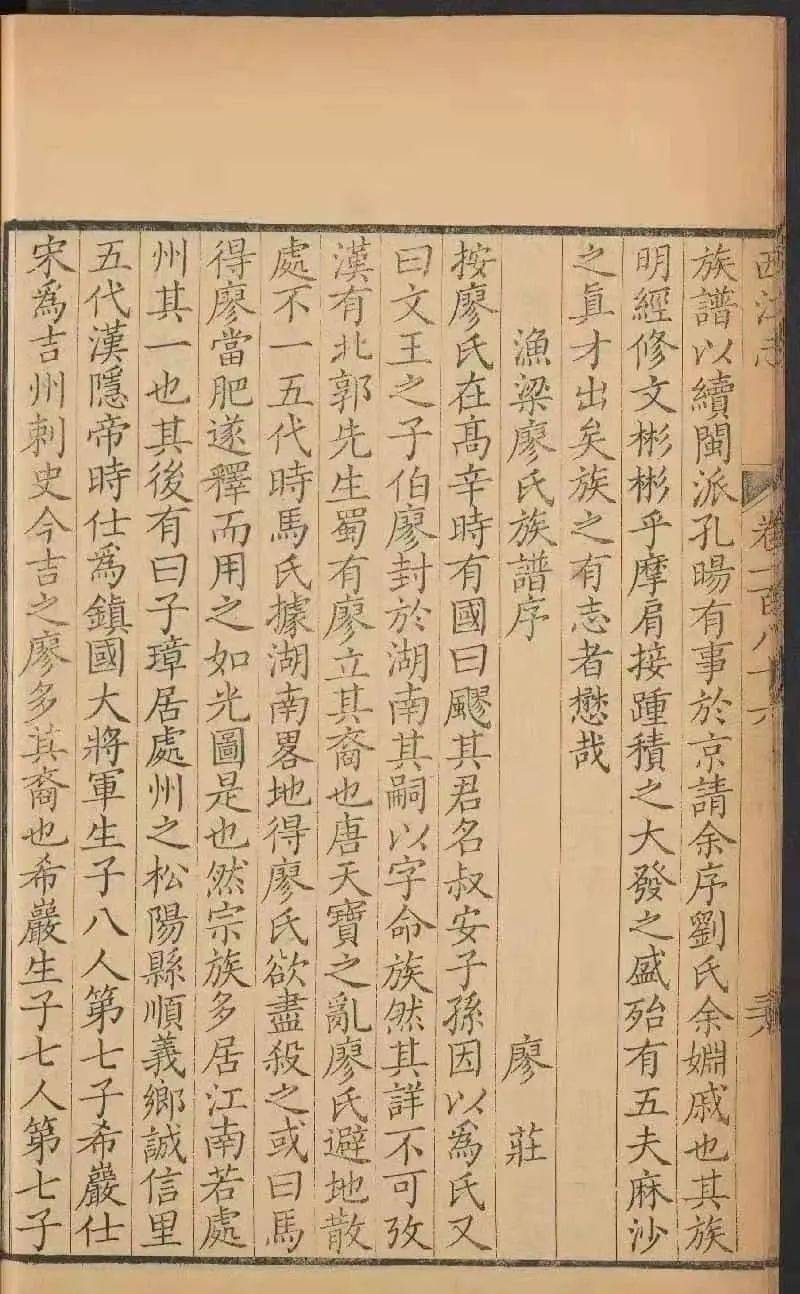 西江志 卷一百八十六
族譜以續閩派孔暘有事於京請余序劉氏余婣戚也其族
明經修文彬彬乎摩肩接踵積之大發之盛殆有五夫麻沙
之眞才出矣族之有志者懋哉
漁梁廖氏族譜序 廖莊
按廖氏在高辛時有國曰飂其君名叔安子孫因以為氏又
曰文王之子伯廖封於湖南其嗣以字命族然其詳不可攷
漢有北郭先生蜀有廖立其裔也唐天寶之亂廖氏避地散
處不一五代時馬氏據湖南畧地得廖氏欲盡殺之或曰馬
得廖當肥遂釋而用之如光圖是也然宗族多居江南若處
州其一也其後有曰子璋居處州之松陽縣順義鄉誠信里
五代漢隱帝時仕為鎮國大將軍生子八人第七子希巖仕
宋為吉州刺史今吉之廖多其裔也希巖生子七人第七子